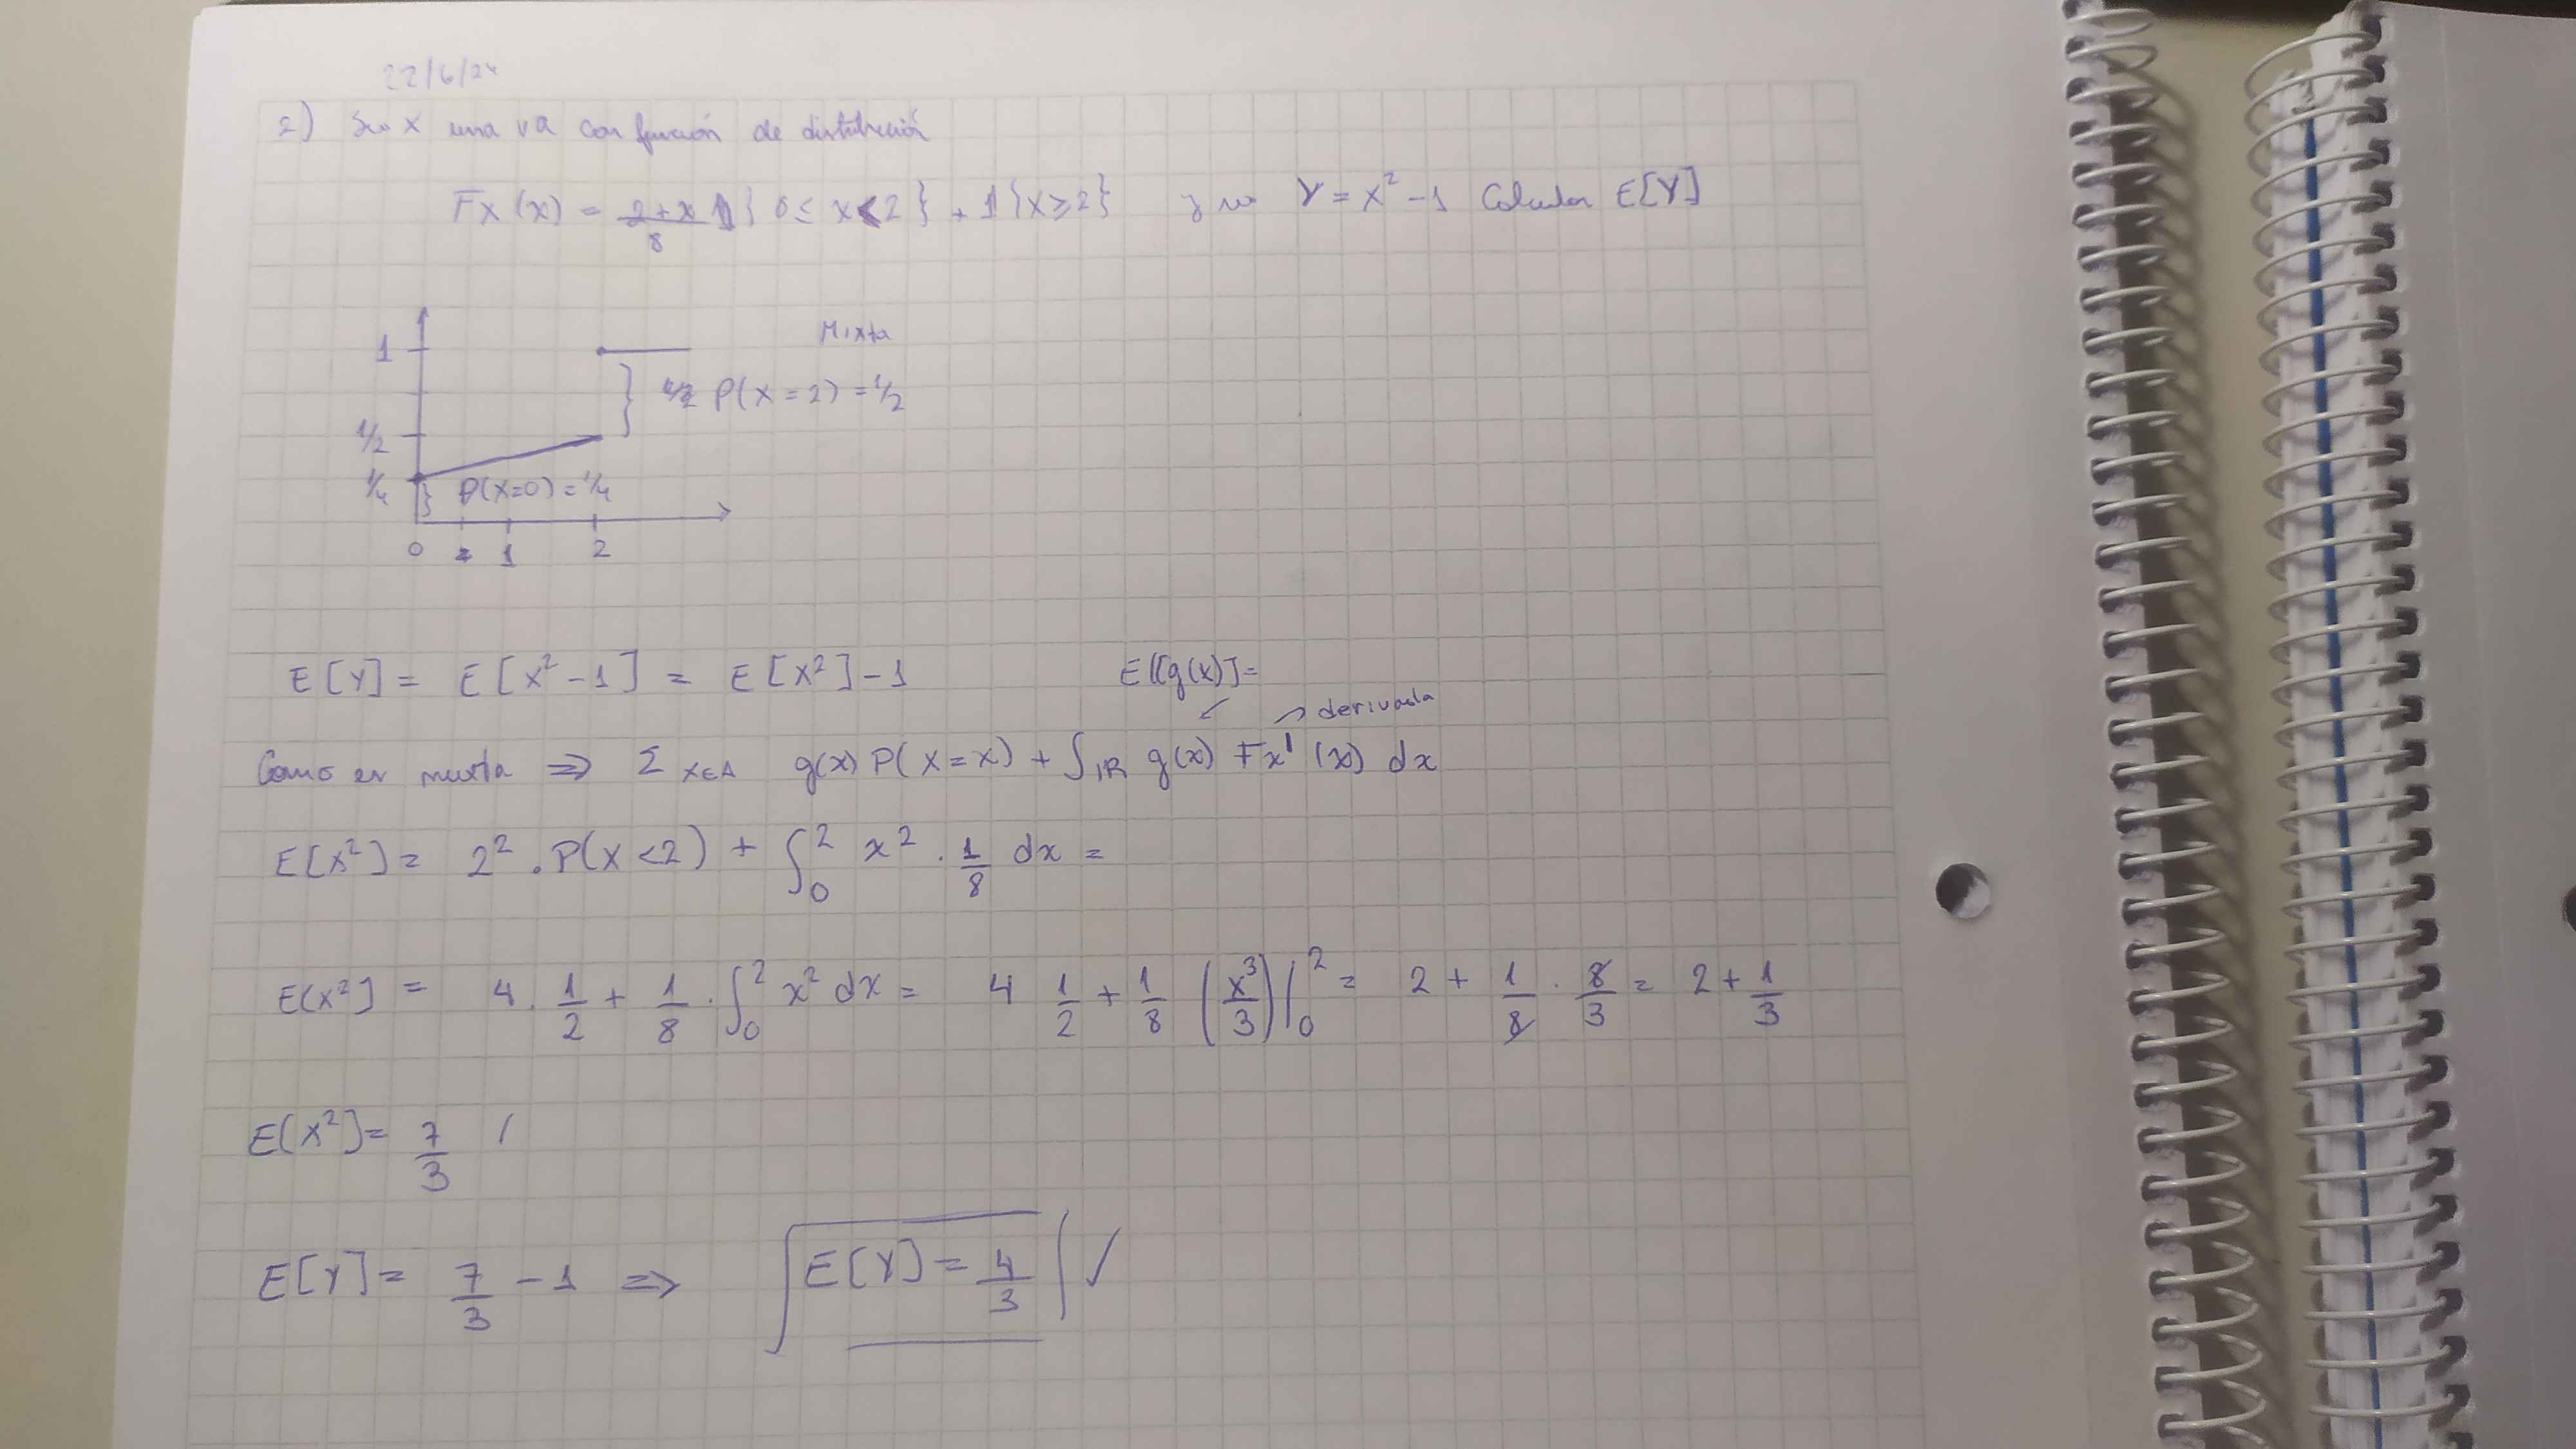 22/6/24
2) Sea X una va con función de distribución
Fx(x) = 2+x/8 1{0 ≤ x < 2} + 1{x ≥ 2} y sea Y = x² - 1 Calcular E[Y]
Mixta
1
} P(X=2) = 1/2
1/2
1/4 } P(X=0) = 1/4
0 1 2
E[Y] = E[x² - 1] = E[x²] - 1 E[g(x)] =
↙ → derivada
Como es mixta ⇒ Σ x∈A g(x) P(X=x) + ∫ℝ g(x) Fx'(x) dx
E[x²] = 2² . P(X<2) + ∫₀² x² . 1/8 dx =
E(x²] = 4 . 1/2 + 1/8 . ∫₀² x² dx = 4 1/2 + 1/8 (x³/3)|₀² = 2 + 1/8 . 8/3 = 2 + 1/3
E(x²] = 7/3 /
E[Y] = 7/3 - 1 ⇒ E[Y] = 4/3 ✓